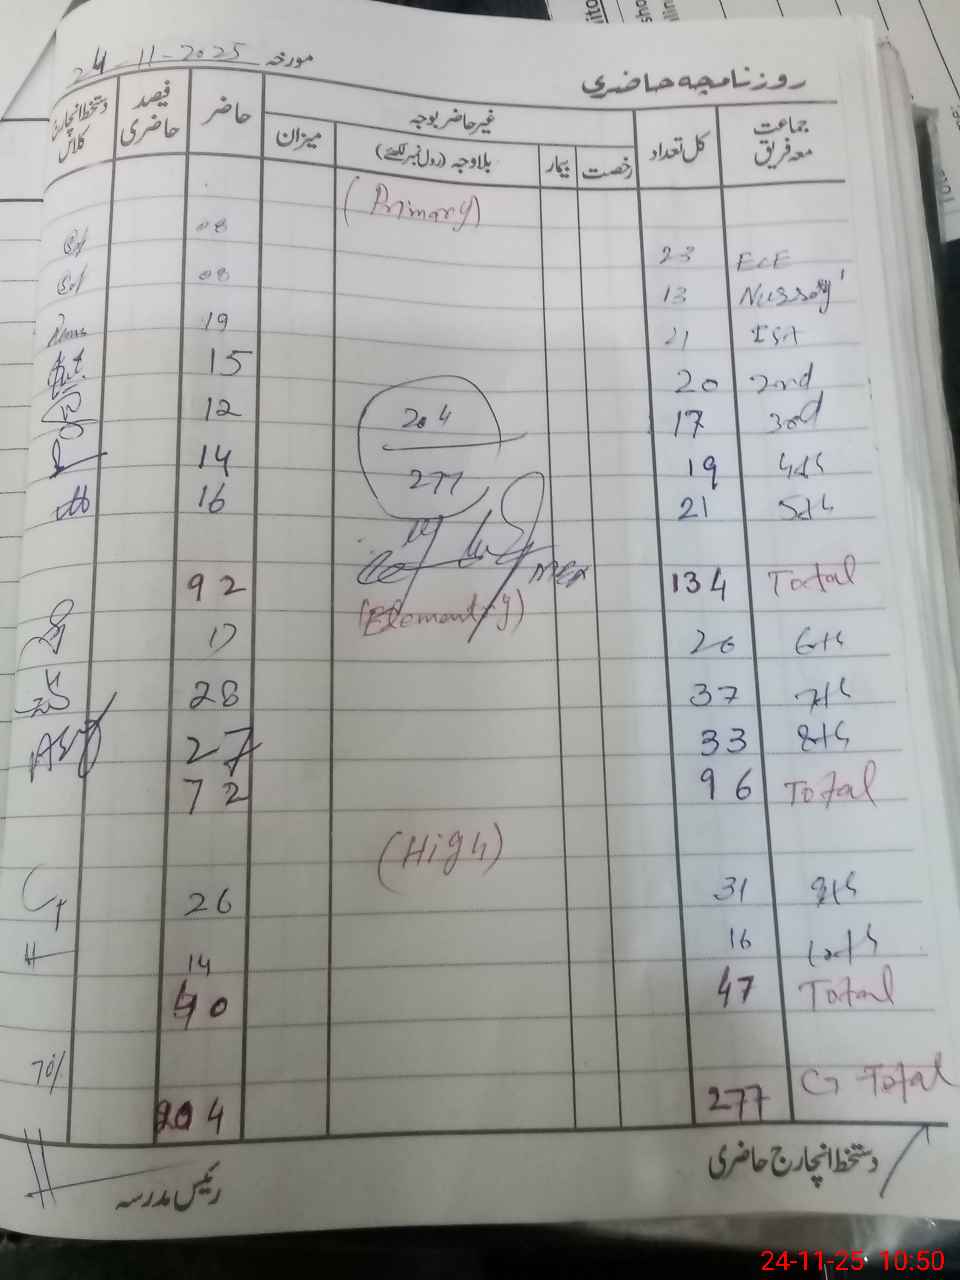 مورخہ 24-11-2025
روزنامچہ حاضری
جماعت معہ فریق کل تعداد غیر حاضر بوجہ حاضر فیصد حاضری دستخط انچارج کلاس
رخصت بیمار بلاوجہ (رول نمبر لکھئے) میزان
(Primary)
ECE 23 08
Nursery 13 08
1st 21 19
2nd 20 15
3rd 17 12
4th 19 14
5th 21 16
204
277
Total 134 92
(Elementry)
6th 26 17
7th 37 28
8th 33 27
Total 96 72
(High)
9th 31 26
10th 16 14
Total 47 40
70%
G Total 277 204
دستخط انچارج حاضری
رئیس مدرسہ
24-11-25 10:50